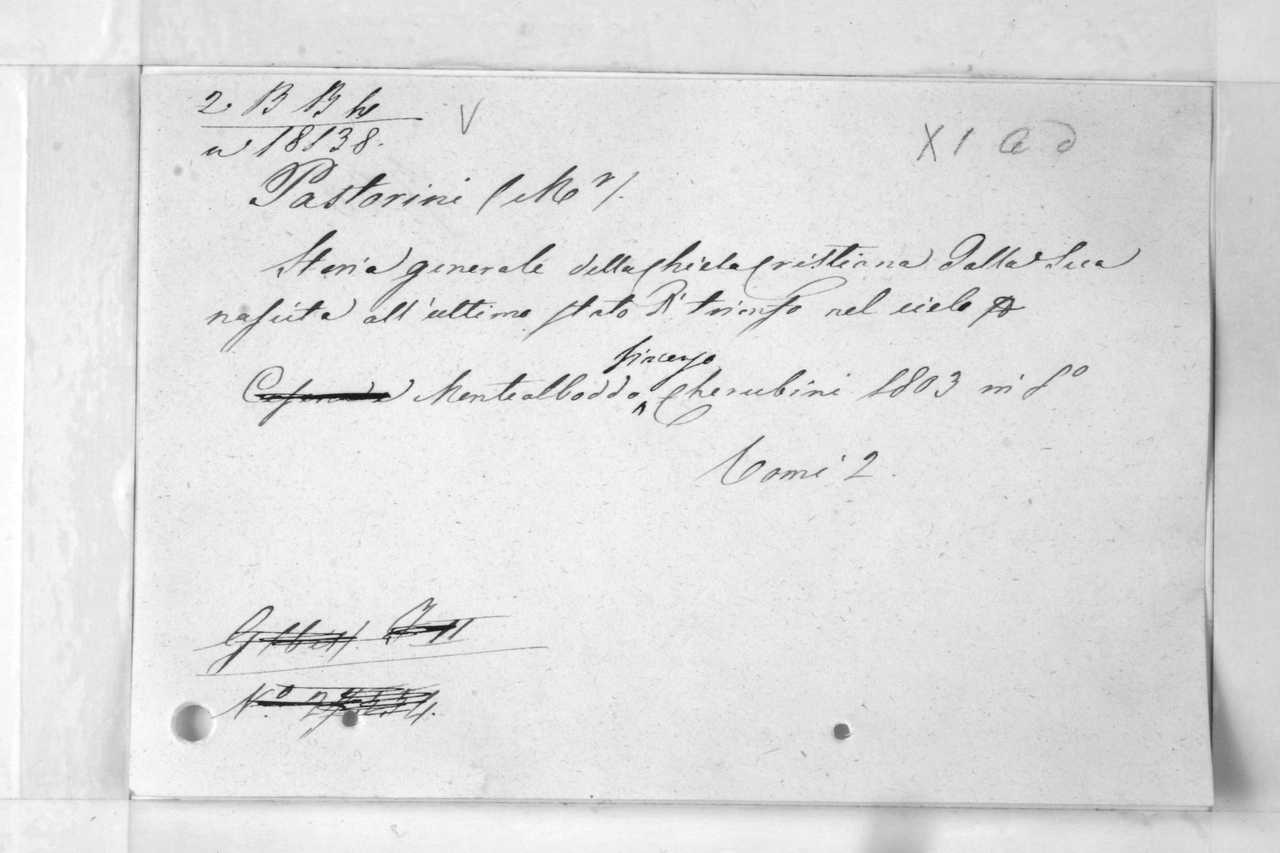 2 B B h
a 18138.
V
X I a d
Pastorini (Mr).
Storia generale della Chiesa Cristiana dalla Sua
nascita all'ultimo stato di trionfo nel cielo
Vincenzo
Montealboddo Cherubini 1803 in 8o
Tomi 2.
No.